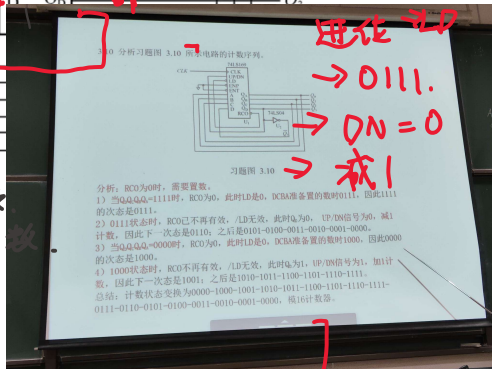 进化 →LD
3.10 分析习题图 3.10 所示电路的计数序列。
→ 0111.
74LS169
CLK
CLK
UP/DN
LD
ENP
ENT
A
B
C
D
RCO
U₁
74LS04
U₂
→ DN = 0
习题图 3.10
→ 减1
分析：RCO为0时，需要置数。
1）当Q₃Q₂Q₁Q₀=1111时，RCO为0，此时LD是0，DCBA准备置的数时0111，因此1111
的次态是0111。
2）0111状态时，RCO已不再有效，/LD无效，此时Q₃为0， UP/DN信号为0，减1
计数，因此下一次态是0110；之后是0101-0100-0011-0010-0001-0000。
3）当Q₃Q₂Q₁Q₀=0000时，RCO为0，此时LD是0，DCBA准备置的数时1000，因此0000
的次态是1000。
4）1000状态时，RCO不再有效，/LD无效，此时Q₃为1，UP/DN信号为1，加1计
数，因此下一次态是1001；之后是1010-1011-1100-1101-1110-1111.
总结：计数状态变换为0000-1000-1001-1010-1011-1100-1101-1110-1111-
0111-0110-0101-0100-0011-0010-0001-0000，模16计数器。
数